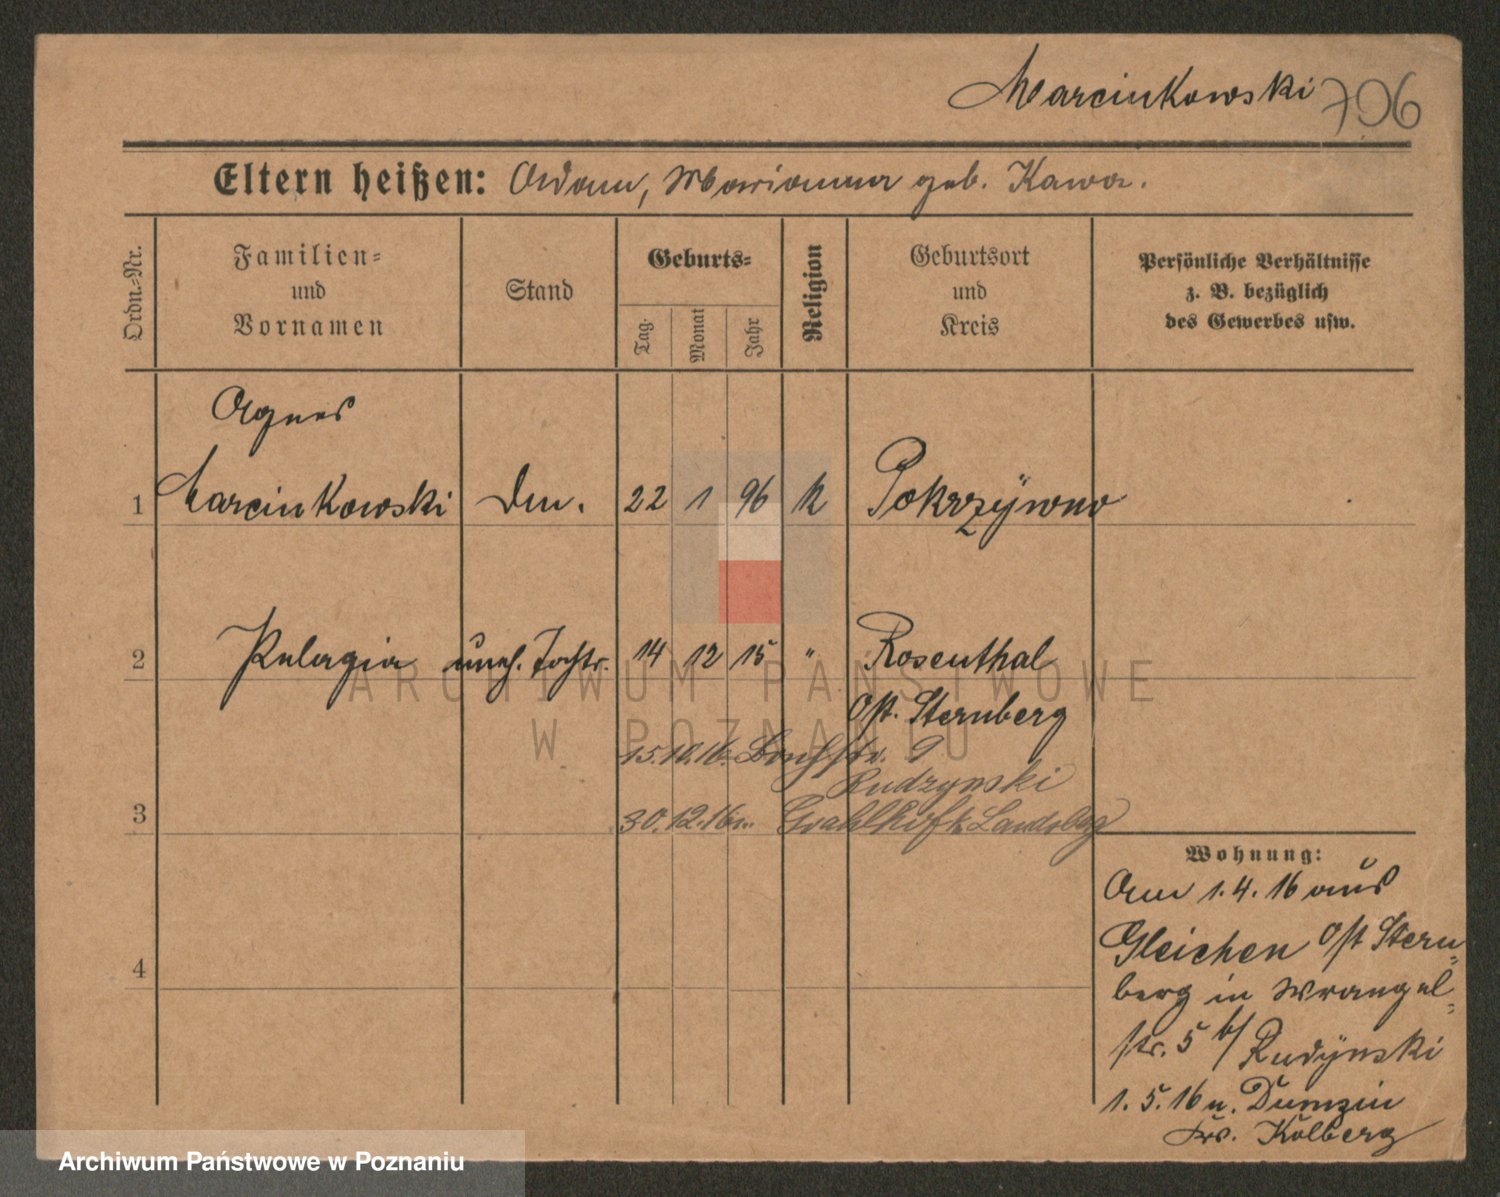 Marcinkowski 706
Eltern heißen: Adam, Marianna geb. Kawa.
Ordn.-Nr.
Familien-
und
Vornamen
Stand
Geburts-
Tag.
Monat
Jahr
Religion
Geburtsort
und
Kreis
Persönliche Verhältnisse
z. B. bezüglich
des Gewerbes usw.
Agnes
1 Marcinkowski 22 1 96 k Pokrzywno
2 Pelagia uneh. Tochtr. 14 12 15 " Rosenthal
Ost. Sternberg
15.10.16. 9
Rudzynski
3 30.12.16 n. Landsbg
4
Wohnung:
Am 1.4.16 aus
Gleichen Ost Stern-
berg in Wrangel-
str. 5 b/ Rudynski
1.5.16 n. Dumzin
Krs. Kolberg
ARCHIWUM PAŃSTWOWE
W POZNANIU
Archiwum Państwowe w Poznaniu